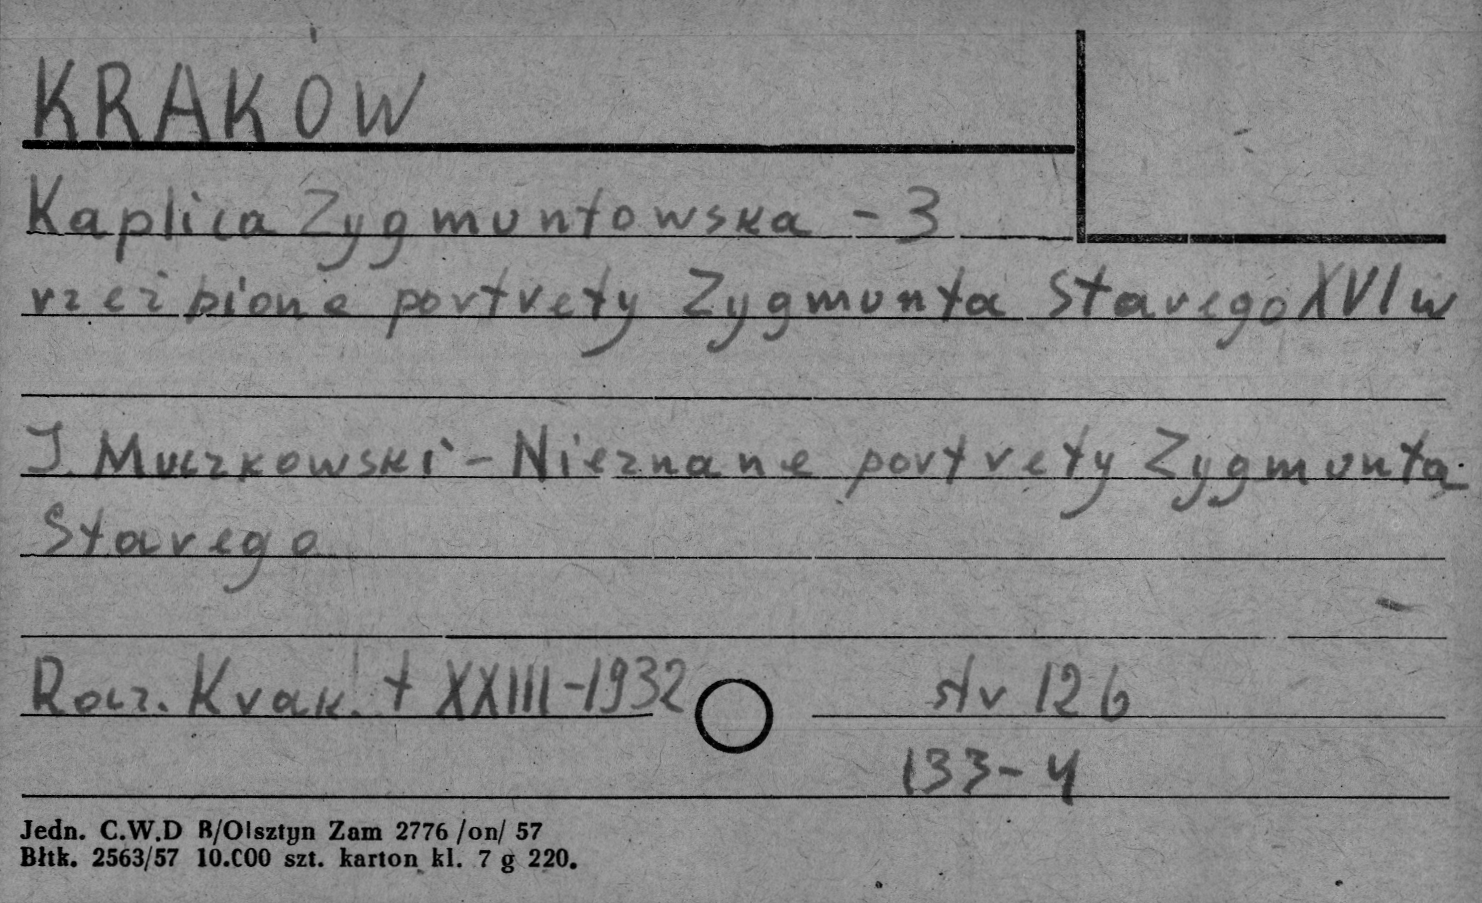 KRAKÓW
Kaplica Zygmuntowska - 3
rzeźbione portrety Zygmunta Starego XVI w
J. Muczkowski - Nieznane portrety Zygmunta
Starego
Rocz. Krak. t XXIII-1932 str 126
133-4
Jedn. C.W.D R/Olsztyn Zam 2776 /on/ 57
Błtk. 2563/57 10.000 szt. karton kl. 7 g 220.